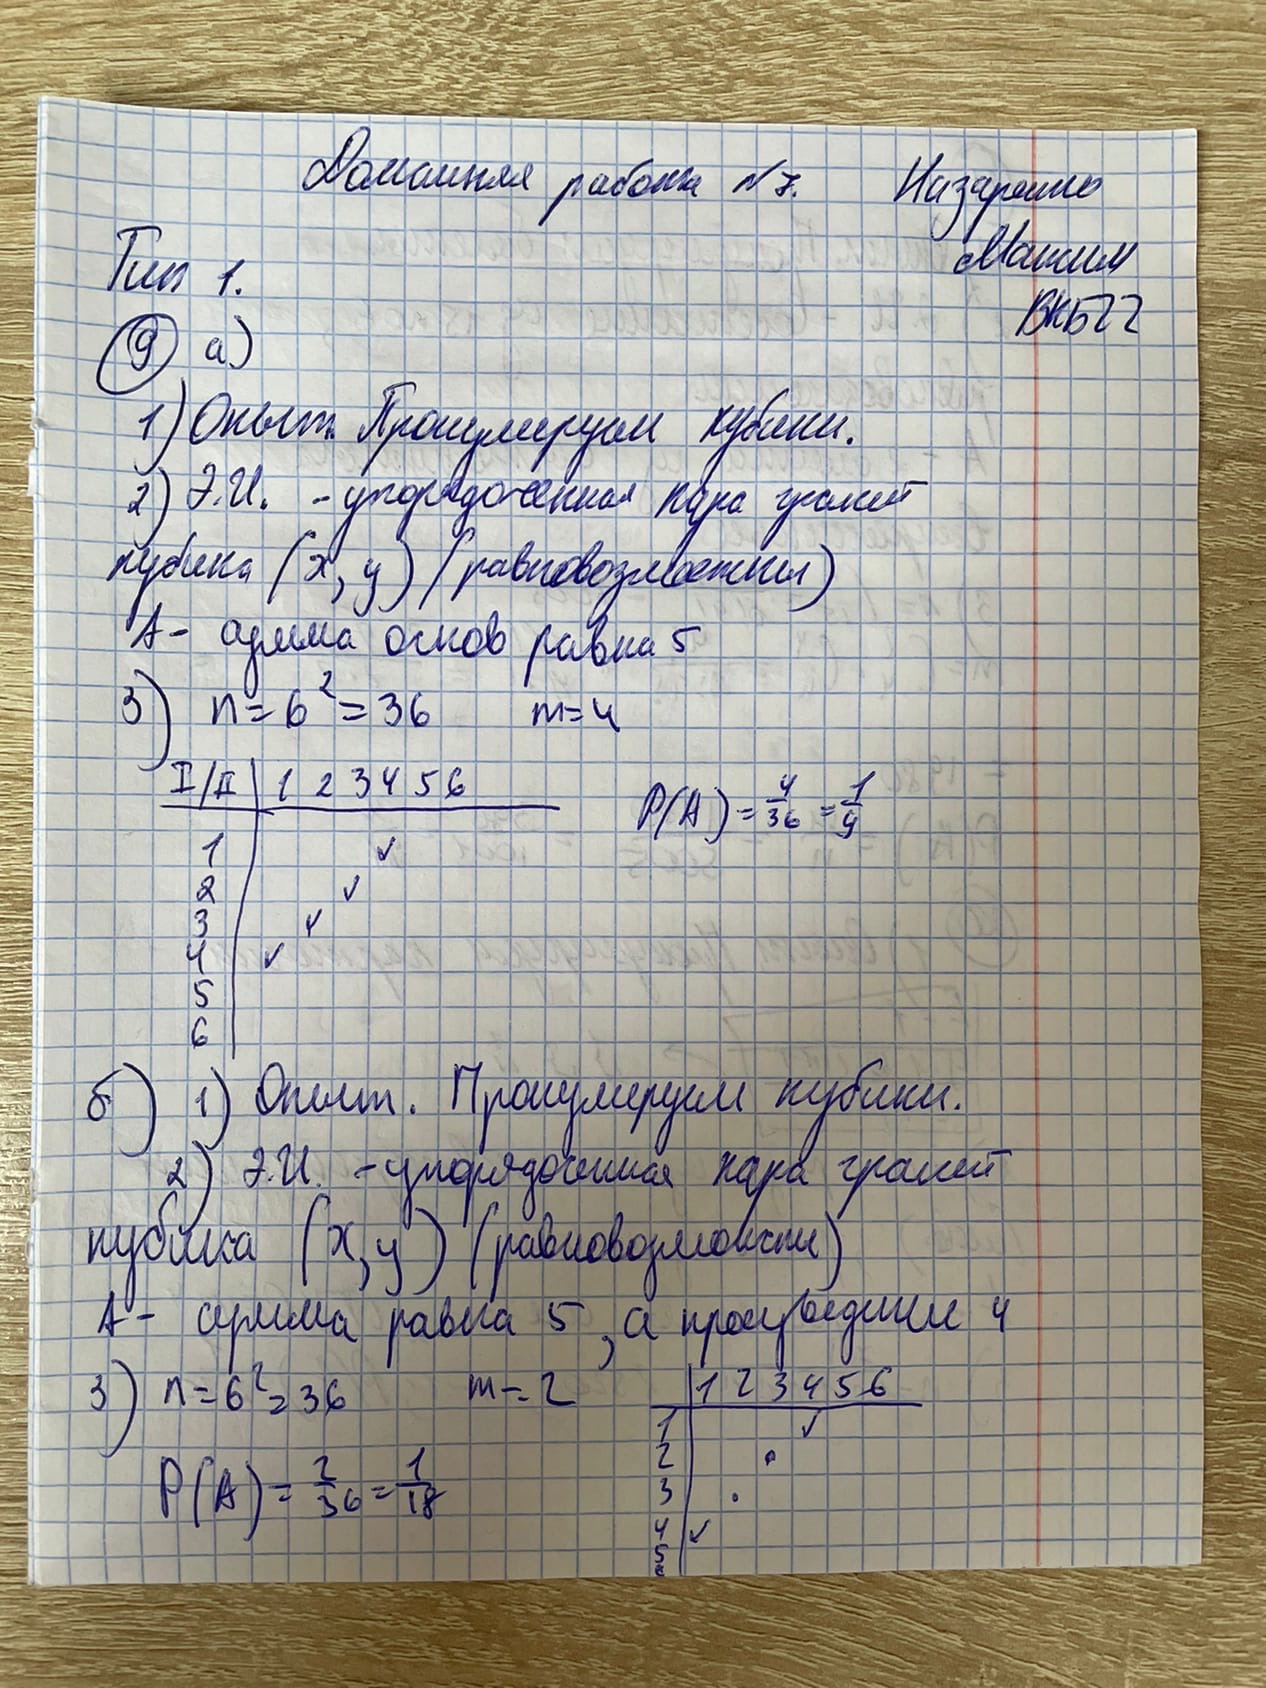 Домашняя работа №7. Назаренко
Максим
ВКБ22
Тип 1.
9 а)
1) Опыт. Пронумеруем кубики.
2) Э.И. - упорядоченная пара граней
кубика (x, y) (равновозможны)
A - сумма очков равна 5
3) n = 6² = 36 m = 4
I/II 1 2 3 4 5 6
P(A) = 4/36 = 1/9
1 ✓
2 ✓
3 ✓
4 ✓
5
6
б) 1) Опыт. Пронумеруем кубики.
2) Э.И. - упорядоченная пара граней
кубика (x, y) (равновозможны)
A - сумма равна 5, а произведение 4
3) n = 6² = 36 m = 2
1 2 3 4 5 6
1 ✓
2 •
3 •
4 ✓
5
6
P(A) = 2/36 = 1/18